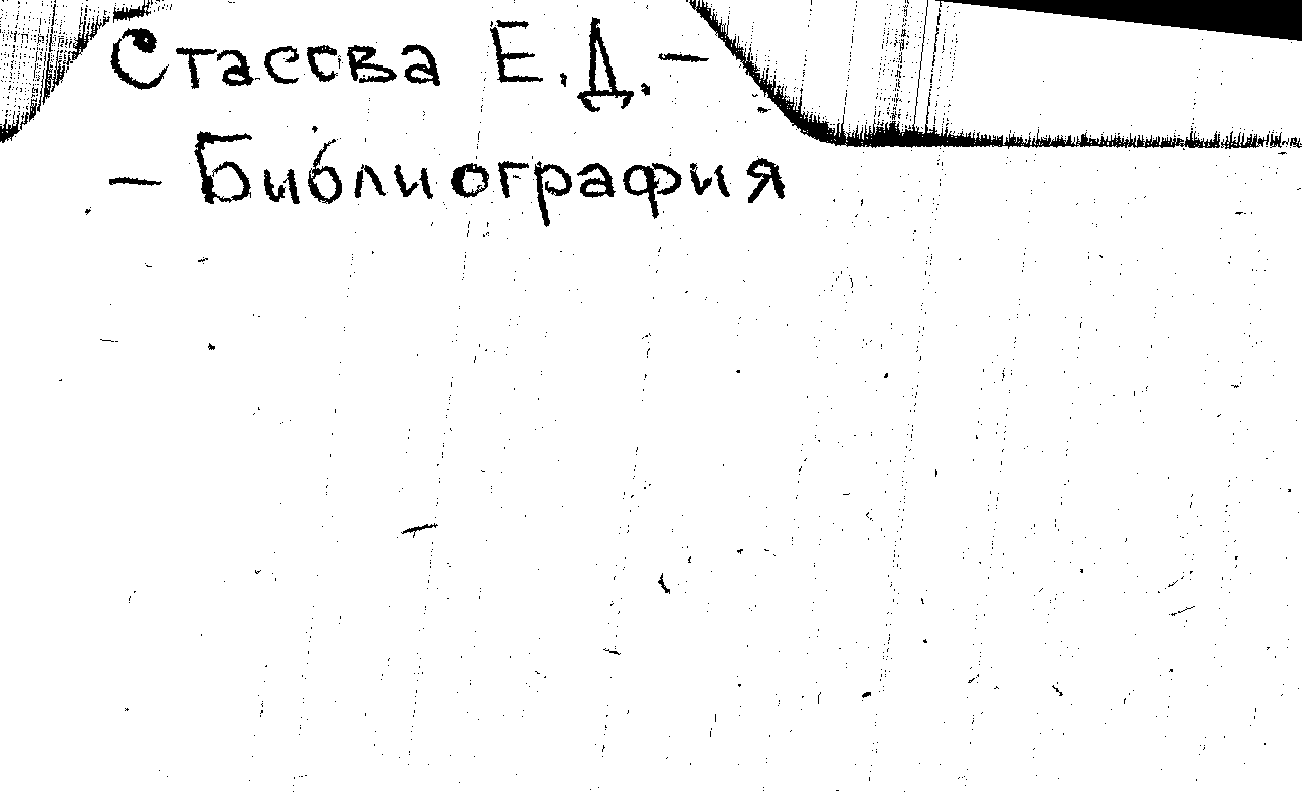 Стасова Е.Д. –
– Библиография